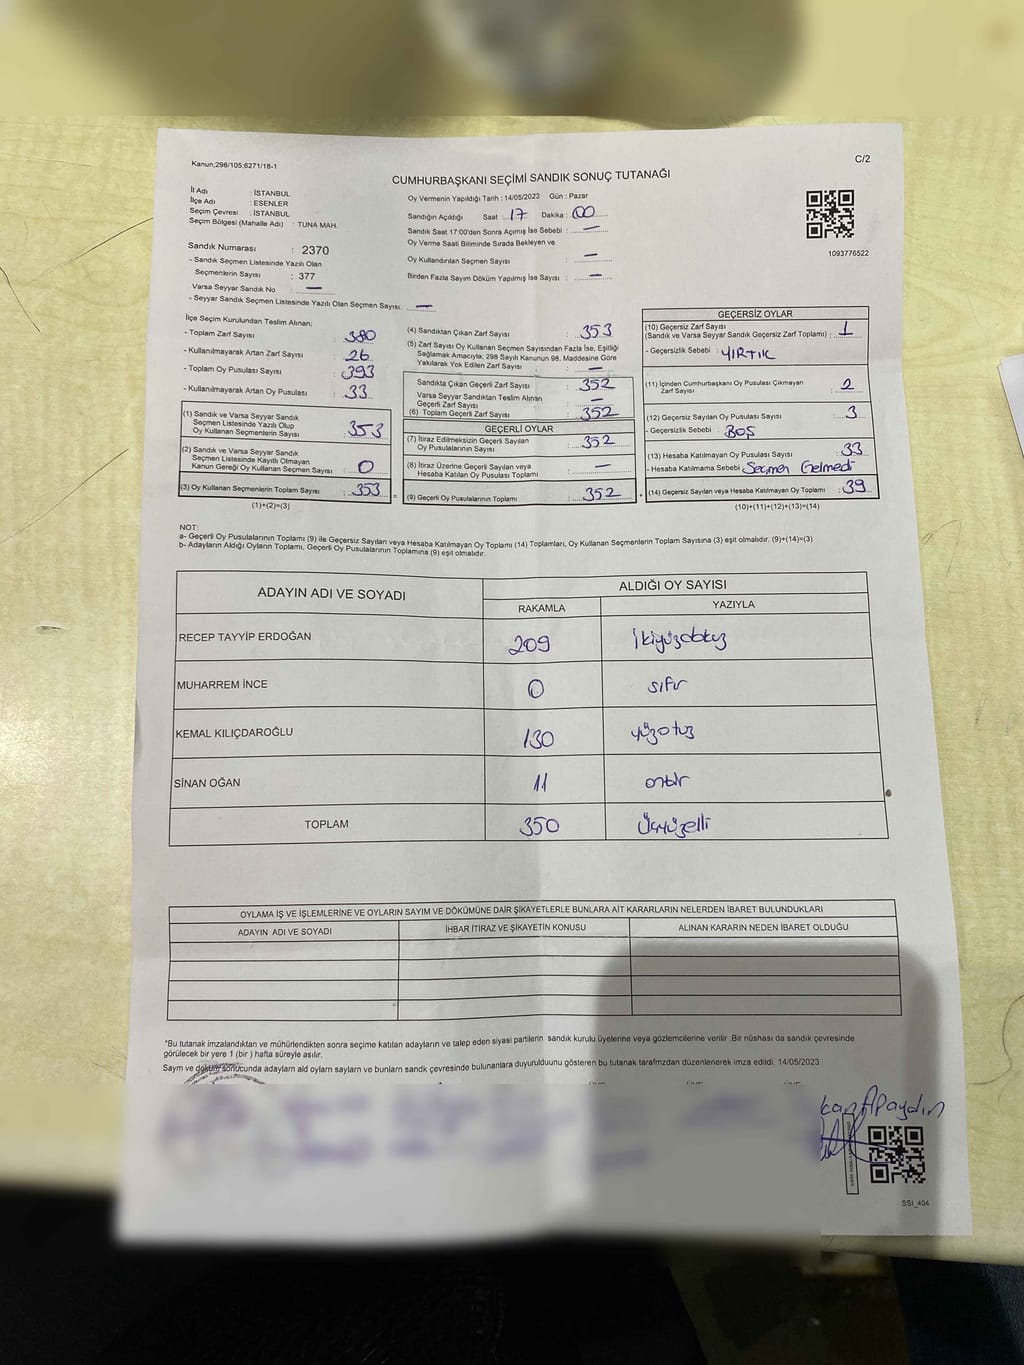 Kanun;298/105;6271/18-1
C/2
CUMHURBAŞKANI SEÇİMİ SANDIK SONUÇ TUTANAĞI
İl Adı : İSTANBUL
İlçe Adı : ESENLER
Seçim Çevresi : İSTANBUL
Seçim Bölgesi (Mahalle Adı) : TUNA MAH.
Sandık Numarası : 2370
- Sandık Seçmen Listesinde Yazılı Olan
Seçmenlerin Sayısı : 377
Varsa Seyyar Sandık No : —
- Seyyar Sandık Seçmen Listesinde Yazılı Olan Seçmen Sayısı: —
Oy Vermenin Yapıldığı Tarih : 14/05/2023 Gün : Pazar
Sandığın Açıldığı Saat : 17 Dakika : 00
Sandık Saat 17:00'den Sonra Açımış İse Sebebi : —
Oy Verme Saati Bitiminde Sırada Bekleyen ve
Oy Kullandırılan Seçmen Sayısı : —
Birden Fazla Sayım Döküm Yapılmış İse Sayısı : —
1093776522
İlçe Seçim Kurulundan Teslim Alınan;
- Toplam Zarf Sayısı : 380
- Kullanılmayarak Artan Zarf Sayısı : 26
- Toplam Oy Pusulası Sayısı : 393
- Kullanılmayarak Artan Oy Pusulası : 33
(1) Sandık ve Varsa Seyyar Sandık
Seçmen Listesinde Yazılı Olup
Oy Kullanan Seçmenlerin Sayısı : 353
(2) Sandık ve Varsa Seyyar Sandık
Seçmen Listesinde Kayıtlı Olmayan
Kanun Gereği Oy Kullanan Seçmen Sayısı : 0
(3) Oy Kullanan Seçmenlerin Toplam Sayısı : 353
(1)+(2)=(3)
(4) Sandıktan Çıkan Zarf Sayısı : 353
(5) Zarf Sayısı Oy Kullanan Seçmen Sayısından Fazla İse, Eşitliği
Sağlamak Amacıyla, 298 Sayılı Kanunun 98. Maddesine Göre
Yakılarak Yok Edilen Zarf Sayısı : —
Sandıkta Çıkan Geçerli Zarf Sayısı : 352
Varsa Seyyar Sandıktan Teslim Alınan
Geçerli Zarf Sayısı : —
(6) Toplam Geçerli Zarf Sayısı : 352
GEÇERLİ OYLAR
(7) İtiraz Edilmeksizin Geçerli Sayılan
Oy Pusulalarının Sayısı : 352
(8) İtiraz Üzerine Geçerli Sayılan veya
Hesaba Katılan Oy Pusulası Toplamı : —
= (9) Geçerli Oy Pusulalarının Toplamı : 352
GEÇERSİZ OYLAR
(10) Geçersiz Zarf Sayısı
(Sandık ve Varsa Seyyar Sandık Geçersiz Zarf Toplamı) : 1
- Geçersizlik Sebebi : YIRTIK
(11) İçinden Cumhurbaşkanı Oy Pusulası Çıkmayan
Zarf Sayısı : 2
(12) Geçersiz Sayılan Oy Pusulası Sayısı : 3
- Geçersizlik Sebebi : BOŞ
(13) Hesaba Katılmayan Oy Pusulası Sayısı : 33
- Hesaba Katılmama Sebebi : Seçmen Gelmedi
+ (14) Geçersiz Sayılan veya Hesaba Katılmayan Oy Toplamı : 39
(10)+(11)+(12)+(13)=(14)
NOT:
a- Geçerli Oy Pusulalarının Toplamı (9) ile Geçersiz Sayılan veya Hesaba Katılmayan Oy Toplamı (14) Toplamları, Oy Kullanan Seçmenlerin Toplam Sayısına (3) eşit olmalıdır. (9)+(14)=(3)
b- Adayların Aldığı Oyların Toplamı, Geçerli Oy Pusulalarının Toplamına (9) eşit olmalıdır.
ADAYIN ADI VE SOYADI ALDIĞI OY SAYISI
RAKAMLA YAZIYLA
RECEP TAYYİP ERDOĞAN 209 İkiyüzdokuz
MUHARREM İNCE 0 sıfır
KEMAL KILIÇDAROĞLU 130 yüzotuz
SİNAN OĞAN 11 onbir
TOPLAM 350 Üçyüzelli
OYLAMA İŞ VE İŞLEMLERİNE VE OYLARIN SAYIM VE DÖKÜMÜNE DAİR ŞİKAYETLERLE BUNLARA AİT KARARLARIN NELERDEN İBARET BULUNDUKLARI
ADAYIN ADI VE SOYADI İHBAR İTİRAZ VE ŞİKAYETİN KONUSU ALINAN KARARIN NEDEN İBARET OLDUĞU
*Bu tutanak imzalandıktan ve mühürlendikten sonra seçime katılan adayların ve talep eden siyasi partilerin sandık kurulu üyelerine veya gözlemcilerine verilir .Bir nüshası da sandık çevresinde
görülecek bir yere 1 (bir ) hafta süreyle asılır.
Sayım ve döküm sonucunda adayların aldı oyların sayları ve bunların sandk çevresinde bulunanlara duyurulduunu gösteren bu tutanak tarafmzdan düzenlenerek imza edildi. 14/05/2023
kan Apaydın
SSI_404